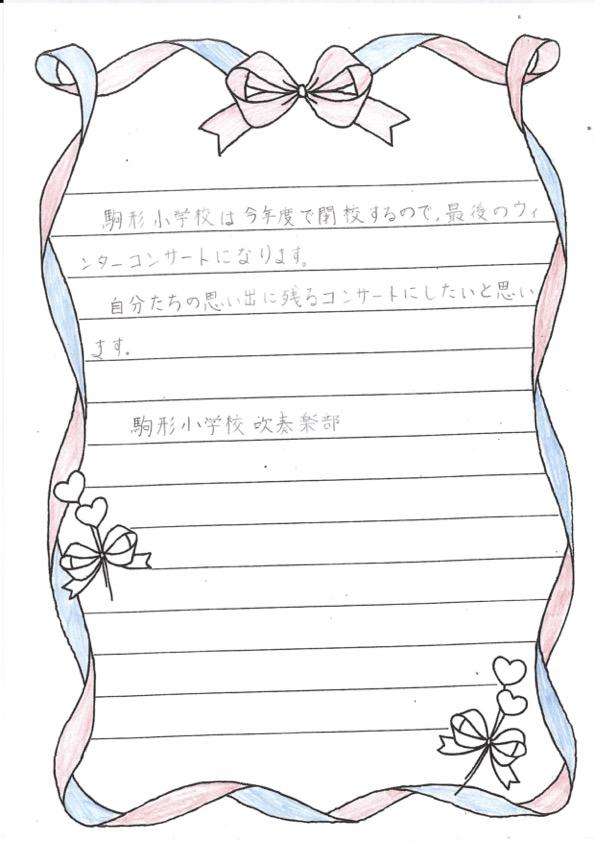 駒形小学校は今年度で閉校するので、最後のウィ
ンターコンサートになります。
自分たちの思い出に残るコンサートにしたいと思い
ます。
駒形小学校吹奏楽部